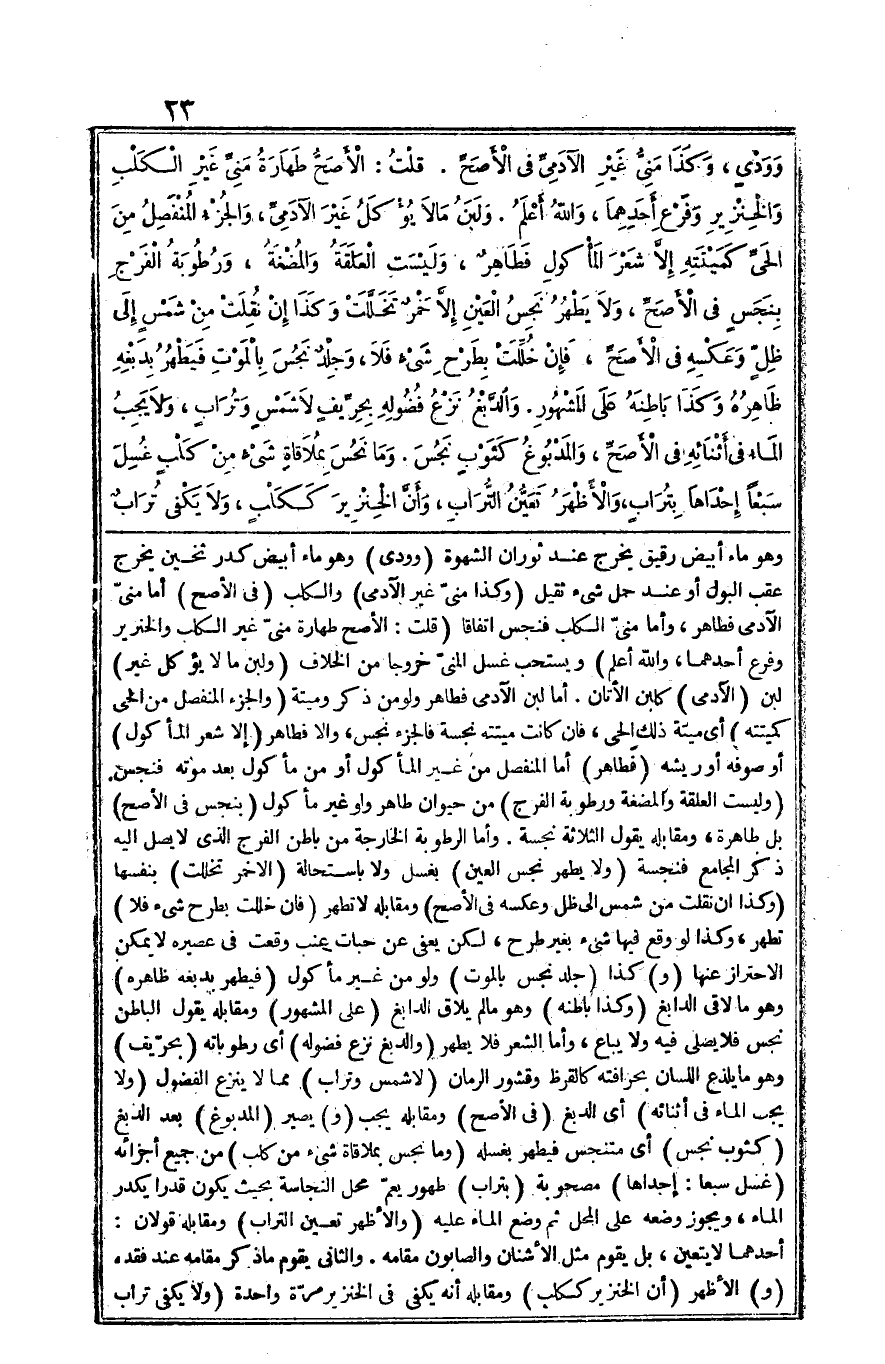 ٢٣
وَوَدْيٍ ، وَكَذَا مَنِيُّ غَيْرِ الْآدَمِيِّ فى الْأَصَحِّ . قلْتُ : الْأَصَحُّ طَهَارَةُ مَنِيِّ غَيْرِ الْكَلْبِ
وَالْخِنْزِيرِ وَفَرْعِ أَحَدِهِمَا ، وَاللّٰهُ أَعْلَمُ . وَلَبَنُ مَالاَ يُؤْ كَلُ غَيْرَ الْآدَمِيِّ ، وَالجُزْءُ الْمُنْفَصِلُ مِنَ
الحَيِّ كَمَيْتَتِهِ إِلاَّ شَعْرَ المَأْ كولِ فَطَاهِرٌ ، وَلَيْسَتِ الْعَلَقَةُ وَالْمُضْغَةُ ، وَرُطُوبَةُ الْفَرْجِ
بِنَجَسٍ فى الْأَصَحِّ ، وَلاَ يَطْهُرُ نَجِسُ العَيْنِ إِلاَّ خَمْرٌ تَخَلَّلَتْ وَكَذَا إِنْ نُقِلَتْ مِنْ شَمْسٍ إِلَى
ظِلٍّ وَعَكْسِهِ فى الْأَصَحِّ ، فَإِنْ خُلِّلَتْ بِطَرْحِ شَىْءٍ فَلاَ ، وَجِلْدٌ نَجُسَ بِالْمَوْتِ فَيَطْهُرُ بِدَبْغِهِ
ظَاهِرُهُ وَكَذَا بَاطِنَهُ عَلَى المَشْهُورِ . وَالدَّبْغُ نَزْعُ فُضُولِهِ بِحِرِّيفٍ لاَشَمْسٍ وَتُرَابٍ ، وَلاَيَجِبُ
المَاء فى أَثْنَائِهِ فى الْأَصَحِّ ، وَالمَدْبُوغُ كَثَوْبٍ نَجَسَ . وَمَا نَجُسَ بِمُلاَقَاةِ شَىْءٍ مِنْ كَلْبٍ غُسِلَ
سَبْعًا إِحْدَاهَا بِتُرَابٍ،وَالْأَظْهَرُ تَعَيُّنُ التُّرَابِ ، وَأَنَّ الْخِنْزِيرَ كَكَلْبٍ ، وَلاَ يَكْفِى تُرَابٌ
وهو ماء أبيض رقيق يخرج عند ثوران الشهوة (وودى) وهو ماء أبيض كدر ثخين يخرج
عقب البول أو عند حمل شىء ثقيل (وكذا منىّ غير الآدمى) والكلب (فى الأصح) أما منىّ
الآدمى فطاهر ، وأما منىّ الكلب فنجس اتفاقا (قلت : الأصح طهارة منىّ غير الكلب والخنزير
وفرع أحدهما، والله أعلم) ويستحب غسل المنىّ خروجا من الخلاف (ولبن ما لا يؤ كل غير)
لبن (الآدمى) كلبن الأتان . أما لبن الآدمى فطاهر ولو من ذكر وميتة (والجزء المنفصل من الحى
كميتته) أى ميتة ذلك الحى ، فان كانت ميتته نجسة فالجزء نجس، والا فطاهر (إلا شعر المأ كول)
أو صوفه أوريشه (فطاهر) أما المنفصل من غير المأ كول أو من مأ كول بعد موته فنجس
(وليست العلقة والمضغة ورطوبة الفرج) من حيوان طاهر ولو غير مأ كول (بنجس فى الأصح)
بل طاهرة ، ومقابله يقول الثلاثة نجسة . وأما الرطوبة الخارجة من باطن الفرج الذى لايصل اليه
ذكر المجامع فنجسة (ولا يطهر نجس العين) بغسل ولا باستحالة (الاخمر تخللت) بنفسها
(وكذا ان نقلت من شمس الى ظل وعكسه فى الأصح) ومقابله لا تطهر (فان خللت بطرح شىء فلا)
تطهر ، وكذا لو وقع فيها شىء بغير طرح ، لكن يعفى عن حبات عنب وقعت فى عصيره لايمكن
الاحتراز عنها (و) كذا (جلد نجس بالموت) ولو من غير مأ كول (فيطهر بدبغه ظاهره)
وهو ما لاقى الدابغ (وكذا باطنه) وهو مالم يلاق الدابغ (على المشهور) ومقابله يقول الباطن
نجس فلا يصلى فيه ولا يباع ، وأما الشعر فلا يطهر (والدبغ نزع فضوله) أى رطوباته (بحرّيف)
وهو مايلذع اللسان بحرافته كالقرظ وقشور الرمان (لاشمس وتراب) مما لا ينزع الفضول (ولا
يجب الماء فى أثنائه) أى الدبغ (فى الأصح) ومقابله يجب (و) يصير (المدبوغ) بعد الدبغ
(كثوب نجس) أى متنجس فيطهر بغسله (وما نجس بملاقاة شىء من كلب) من جميع أجزائه
(غسل سبعا : إحداها) مصحوبة (بتراب) طهور يعمّ محل النجاسة بحيث يكون قدرا يكدر
الماء ، ويجوز وضعه على المحل ثم وضع الماء عليه (والأظهر تعيين التراب) ومقابله قولان :
أحدهما لايتعين ، بل يقوم مثل الأشنان والصابون مقامه . والثانى يقوم ماذكر مقامه عند فقده
(و) الأظهر (أن الخنزير ككلب) ومقابله أنه يكفى فى الخنزير مرّة واحدة (ولا يكفى تراب